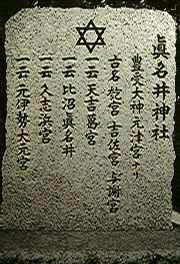 眞名井神社
豊受大神元津宮より
古名 匏宮 吉佐宮 与謝宮
一云 天吉葛宮
一云 比沼眞名井
一云 久志浜宮
一云 元伊勢大元宮